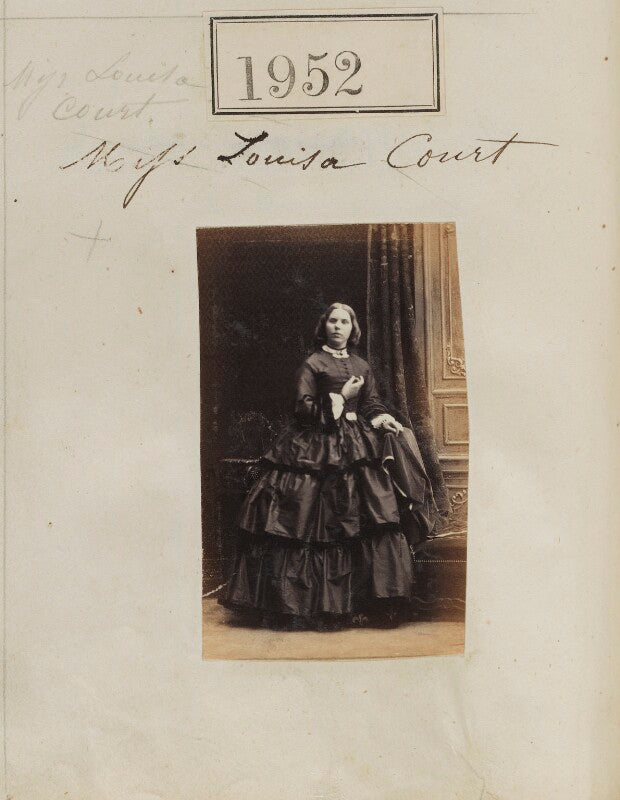 1952
Miss Louisa
Court.
Miss Louisa Court